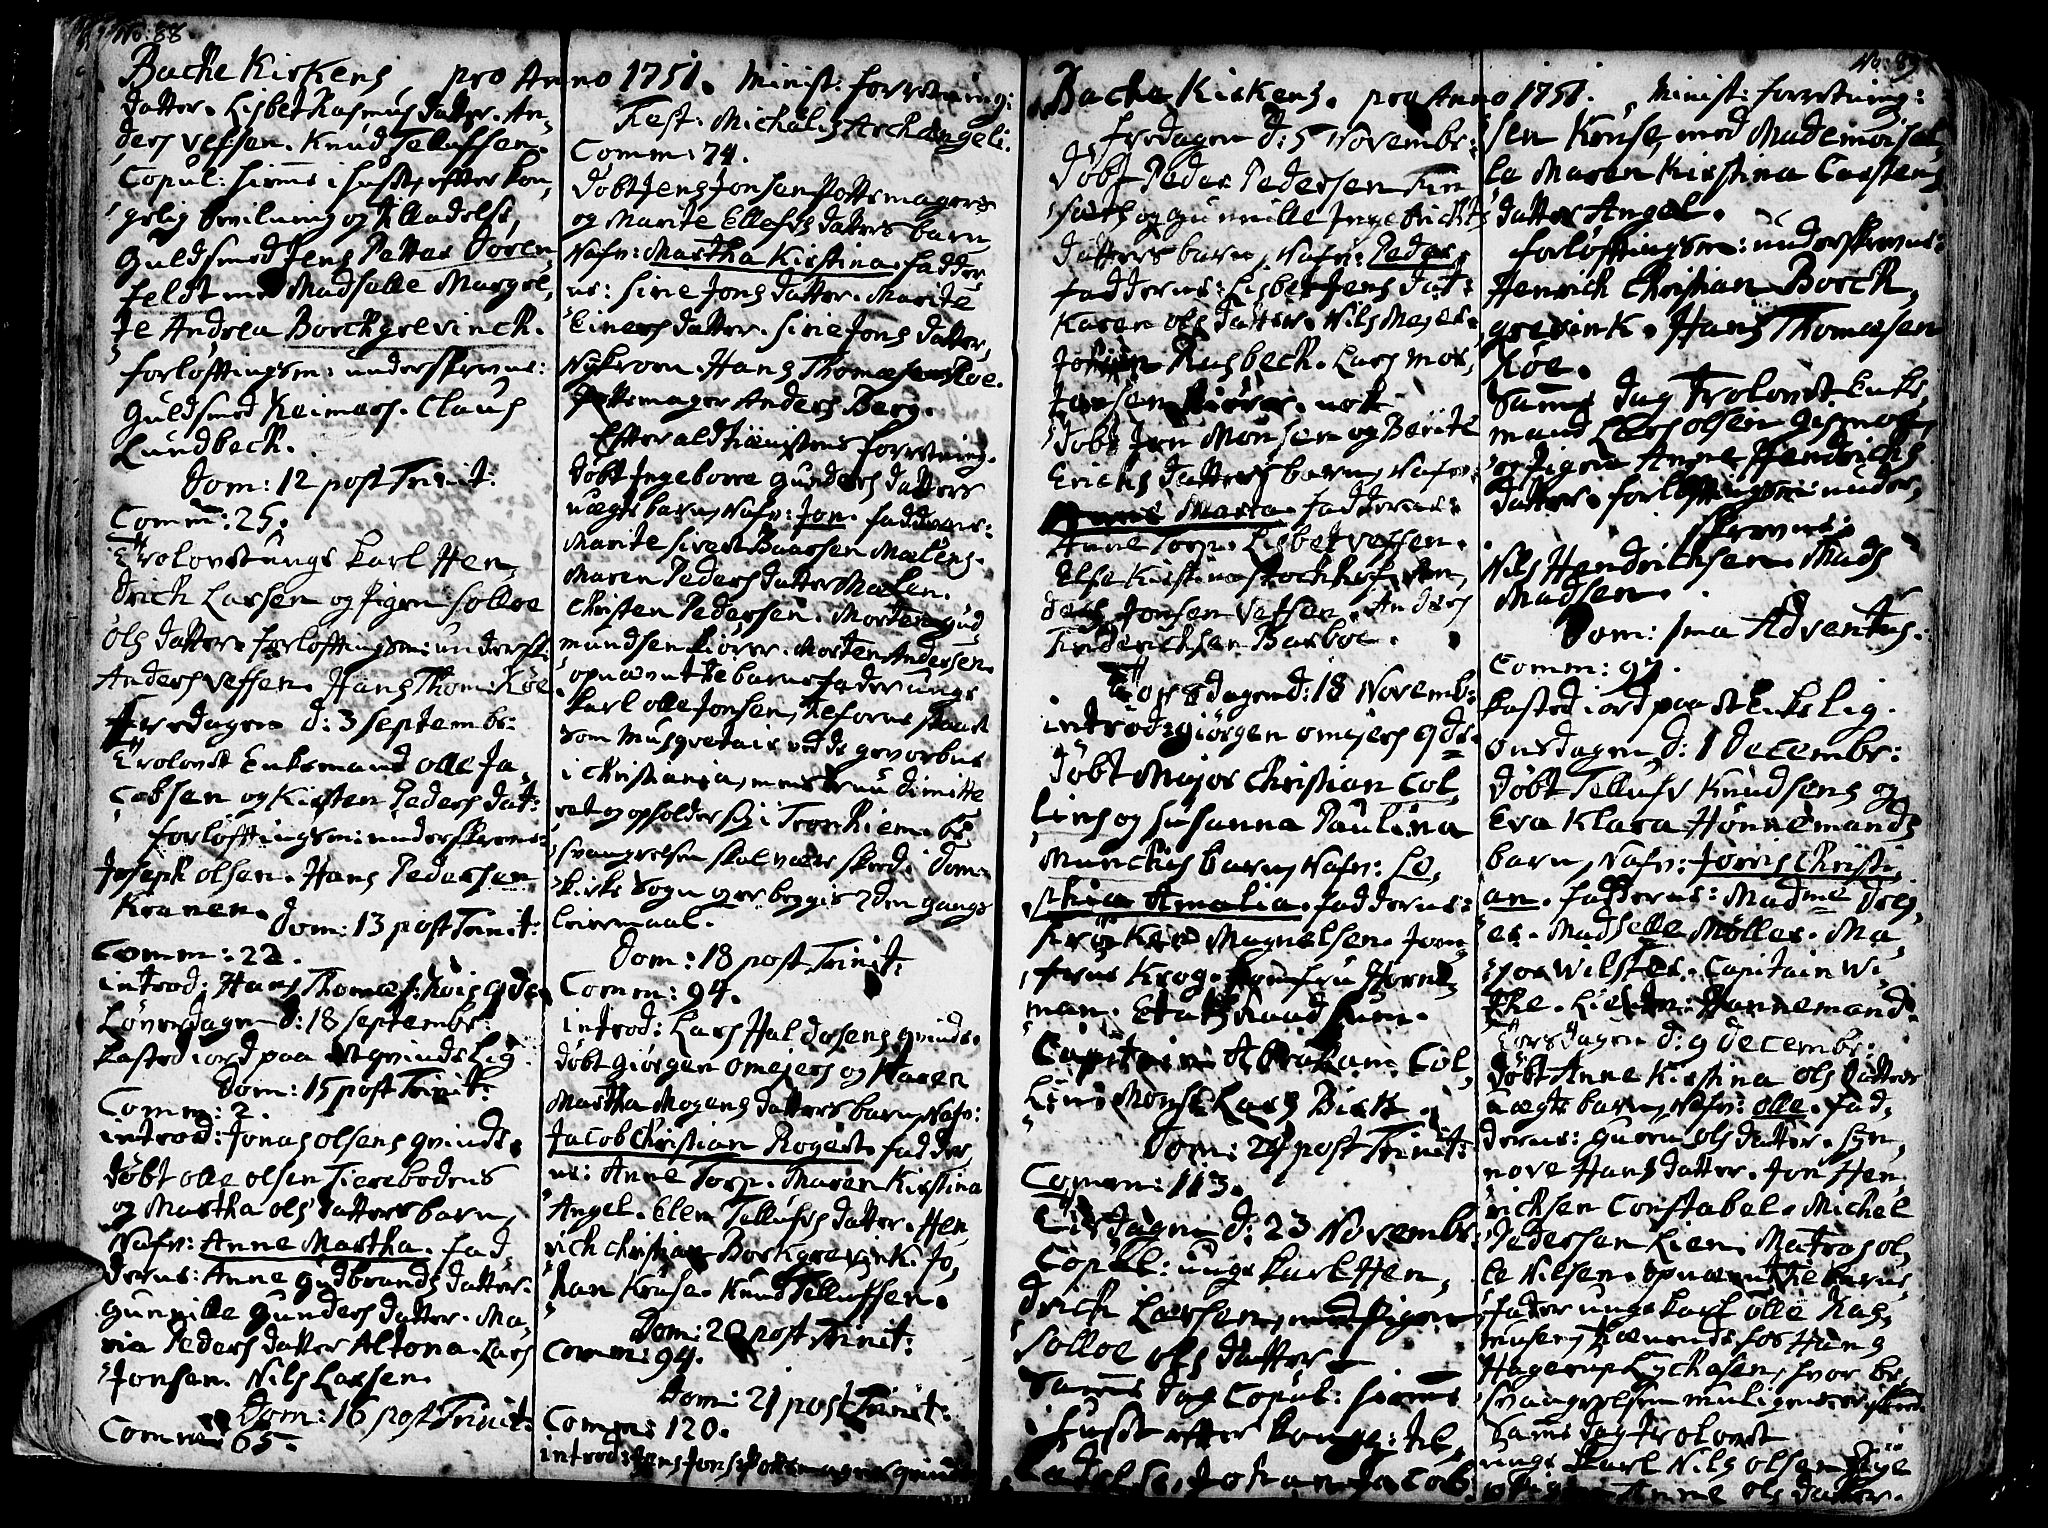 No: 88
Bache Kirkens, pro Anno 1751. Minist: forretning:
datter. Lisbet Rasmus datter. An,
ders Vefsen. Knud Tellufsen.
Copul: hiemme i huset, efter kon,
gelig bevilning og tilladelse,
Guldsmed Jens Petter Doren,
feldt med Madselle Margre,
te Andrea Borchgrevinck.
forlöftningsm: underskrevne:
Guldsmed Reimers. Claus
Lundbeck.
Dom: 12 post Trinit:
Comm: 25.
Trolovet ungs karl Hen,
drich Larsen og Pigen Solloe
Ols datter. forlöftningsm: underskr:
Anders Vefsen. Hans Thom: Köe
Fredagen d: 3 Septembr:
Trolovet Enkemand Olle Ja,
cobsen og Kirsten Peders dat:
forlöftningsm: underskrevne:
Joseph Olsen. Hans Pedersen
Kranen.
Dom: 13 post Trinit:
Comm: 22.
introd: Hans Thomes: Köis qde.
Löverdagen d: 18 Septembr:
Kasted iord paa et qvinds Lig
Dom: 15 post Trinit:
Comm: 2.
introd: Jonas Olsens qvinde.
döbt Olle Olsen Tierebodens
og Martha Ols datters barn,
Nafn: Anne Martha. fad,
derne: Anne Gudbrands datter.
Gunnille Gunders datter. Ma,
ria Peders datter Altona. Lars
Jonsen. Nils Larsen.
Dom: 16 post Trinit:
Comm: 65.
Fest: Michälis Archangeli.
Comm: 74.
döbt Jens Jonsen Pottemagers
og Marite Ellefs datters barn
Nafn: Martha Kirstina. fadder,
ne: Sirie Jons datter. Marite
Einers datter. Sirie Jons datter,
Nykroen. Hans Thomesen Köe.
Pottemager Anders Berg.
Efter ald tienistens forretning.
döbt Ingeborre Gunders datters
uægte barn, Nafn: Jon. fadderne:
Marite Sivert Baarsen Malens.
Maren Peders datter Malen.
Christen Pedersen. Morten Gud,
mundsen Kiörer. Morten Andersen.
opnævnt til barnefader ungs
karl Olle Jonsen, tilforne staaet
som Musqvetair ved de gevorbne
i Christiania, mens er nu dimitte
ret og opholder sig i Tronhiem. be
svangrelsen skal være skeed i Dom,
kirke Sogn og er begges 2den gangs
leiermaal.
Dom: 18 post Trinit:
Comm: 94.
introd: Lars Haldorsens qvinde.
döbt Giörgen Omejers og Karen
Martha Mogens datters barn, Nafn:
Jacob Christian Rogert. fadder,
ne: Anne Torp. Maren Kirstina
Angel. Elen Tellufs datter. Hen,
rich Christian Borkgrevink. Jo,
han Kruse. Knud Tellufsen.
Dom: 20 post Trinit:
Comm: 94.
Dom: 21 post Trinit:
Comm: 120.
introd: Jens Jons: Pottemagers qvinde
No: 89
Bache Kirkens. pro Anno 1751. Minist: forretning:
fredagen d: 5 Novembr:
Döbt Peder Pedersen Fin
sæth og Gunnille Ingebrichts
datters barn, Nafn: Peder.
fadderne: Lisbet Jens dat:
Karen Ols datter. Nils Mejer.
Rusbeck. Lars Mor,
Jonsen
döbt Jon Monsen og Berite
Erichs datters barn, Nafn:
Maria. fadderne:
Anne Torp. Lisbet Vefsen.
Else Kirstina Stockhof.
Jonsen Vefsen. Anders
Friderichsen Barboe.
Torsdagen d: 18 Novemb:
introd: Giörgen Omejers qde:
döbt Major Christian Col,
lins og Susanna Paulina
Munchs barn, Nafn: Le,
Amalia. fadderne:
Fröken Magnelsen. Jom,
frue Krog. Jomfru Horne
man. Etatsraad
Capitain Abraham Col,
lin. Mons: Lars Birk.
Dom: 24 post Trinit:
Comm: 113.
Tirsdagen d: 23 Novembr:
Copul: ungs karl Hen,
drich Larsen, med Pigen
Solloe Ols datter
Samme dag Copul: hiemme
i huset efter kongl: til,
ladelse, Johan Jacob
sen Kruse, med Mademoisel,
la Maren Kirstina Carstens
datter Angel.
forlöftningsm: underskrevne:
Henrich Christian Borck,
grevink. Hans Thomesen
Köe.
Samme dag Trolovet Enke,
mand Lars Olsen
og Pigen Anne Hendrichs
datter. forlöftningsm: under,
skrevne:
Nils Hendrichsen. Mads
Madsen.
Dom: 1ma Adventus.
Comm: 97.
kasted iord paa et Enkes Lig.
Onsdagen d: 1 Decembr:
döbt Tellufs Knudsens og
Eva Klara Hönnemands
barn, Nafn: Jörris Christi,
an. fadderne: Madme Drej,
er. Madselle Möller. Ma,
jor Wilster. Capitain Wi,
the. Lieutn: Hannemand.
Torsdagen d: 9 Decembr:
döbt Anne Kirstina Ols datters
uægte barn, Nafn: Olle. fad,
derne: Guren Ols datter. Syn,
nove Hans datter. Jon Hen,
richsen Constabel. Michel
Pedersen Lien. Matros Ol,
le Nilsen. opnævnt til barne,
fader ungs karl Olle Ras,
musen, tienende hos Hans
Hagerup Lyckesen, hvor be,
svangrelsen muligens er skeed.
Samme dag Trolovet
ungs karl Nils Olsen
og Pigen Anne Ols datter.